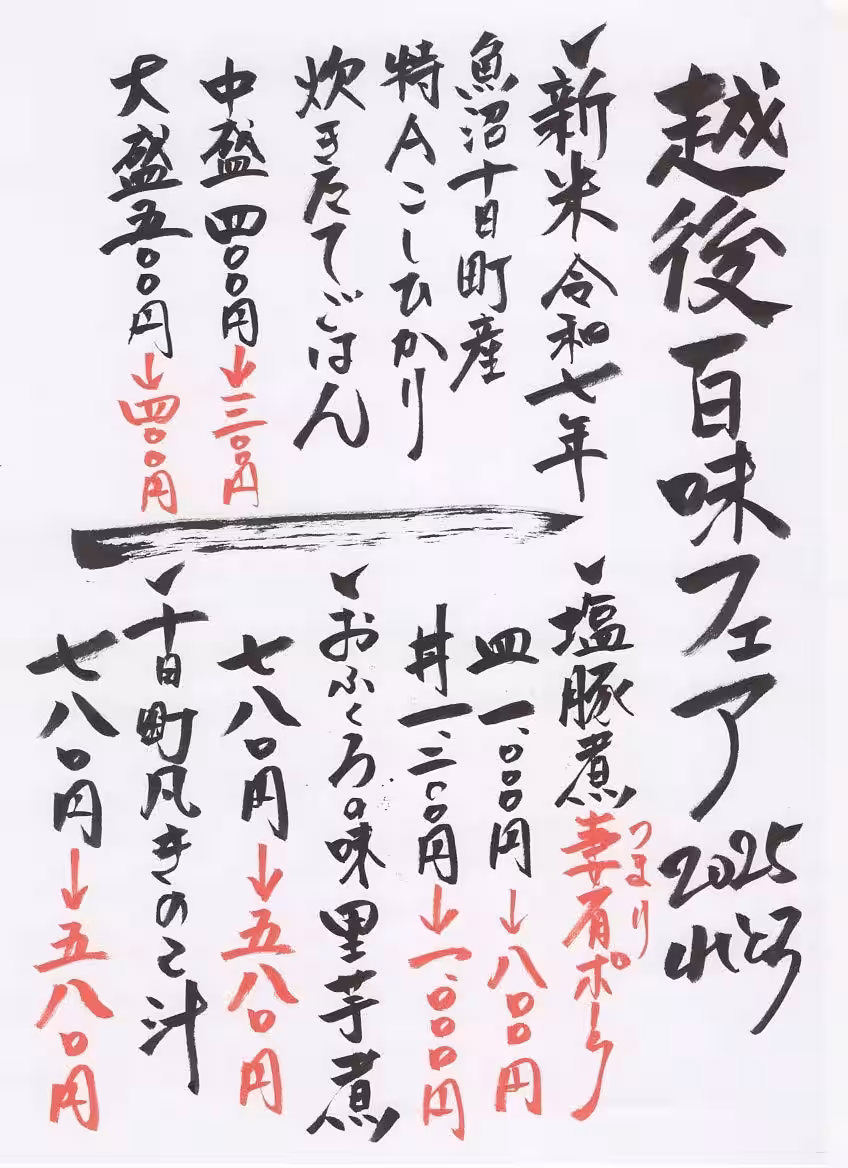 越後百味フェア2025
れとろ
新米令和七年
魚沼十日町産
特Aこしひかり
炊きたてごはん
中盛四〇〇円→三〇〇円
大盛五〇〇円→四〇〇円
塩豚煮妻有ポーク
つまり
皿一、〇〇〇円→八〇〇円
丼一、二〇〇円→一、〇〇〇円
おふくろの味里芋煮
七八〇円→五八〇円
十日町凡きのこ汁
七八〇円→五八〇円